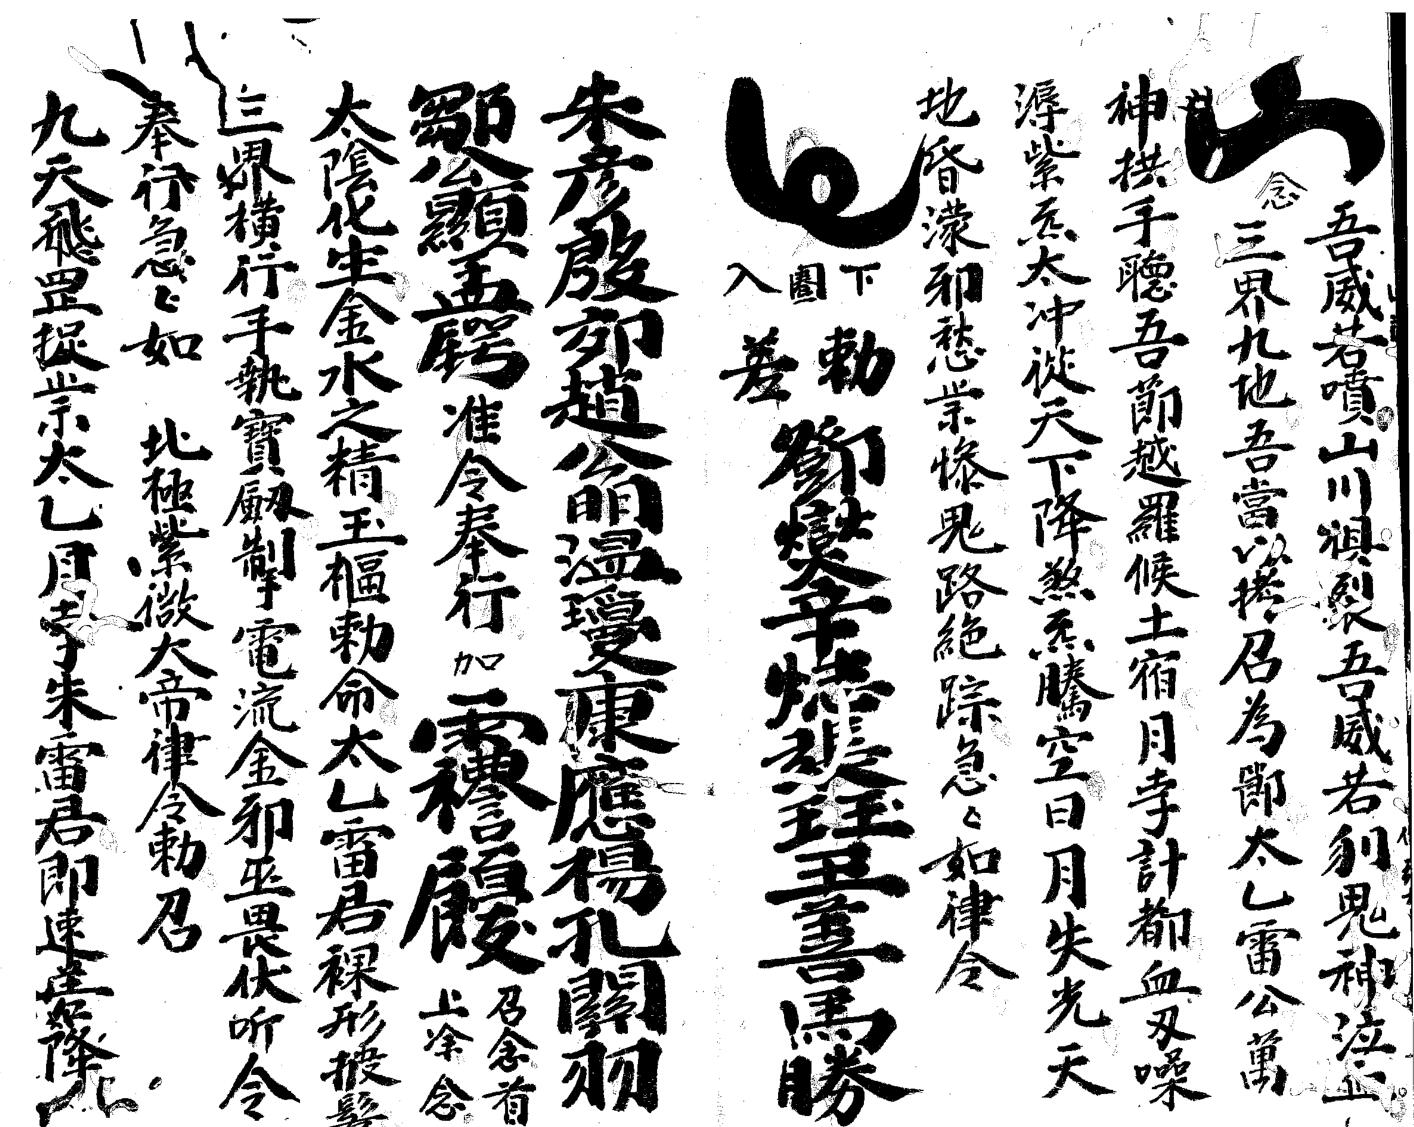 吾威若噴山川損裂吾威若利鬼神泣
念
三界九地吾當以捲召為鄧太乙雷公萬
神拱手聽吾節越羅候土宿月孛計都血刃噪
紫炁太冲從天下降煞炁騰空日月失光天
地昏濛邪愁祟慘鬼路絕踪急〻如律令
下圈入
勅差
鄧燮辛
王善馬勝
朱彥殷郊趙公明溫瓊康應楊孔關羽
鄒公顯孟鍔
准令奉行
加
召念首
上塗念
太陰化生金水之精玉樞勅命太乙雷君裸形披髮
三界橫行手執寶劔制電流金邪巫畏伏听令
奉行急〻如 北極紫微大帝律令勅召
九天飛罡捉祟太乙月孛朱雷君即速降